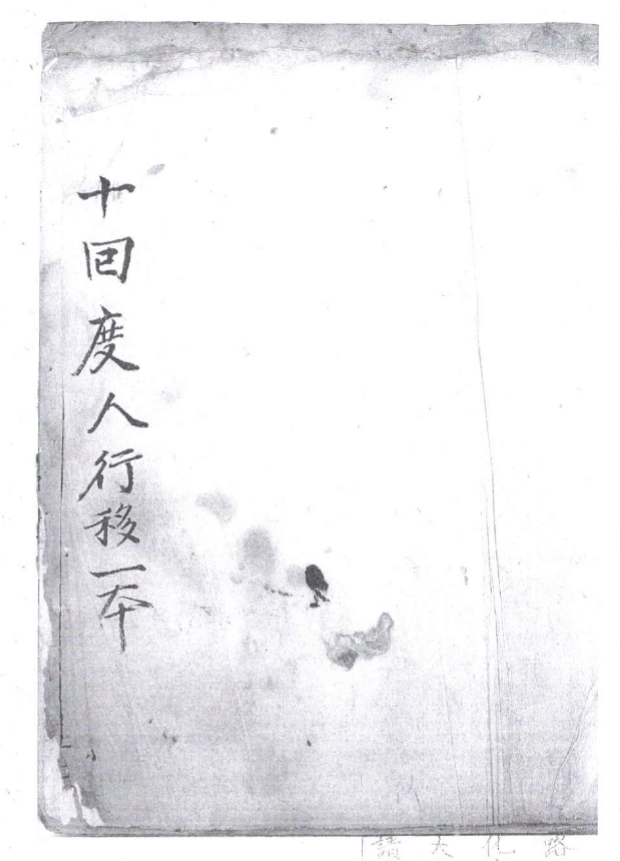 十回度人行移一本